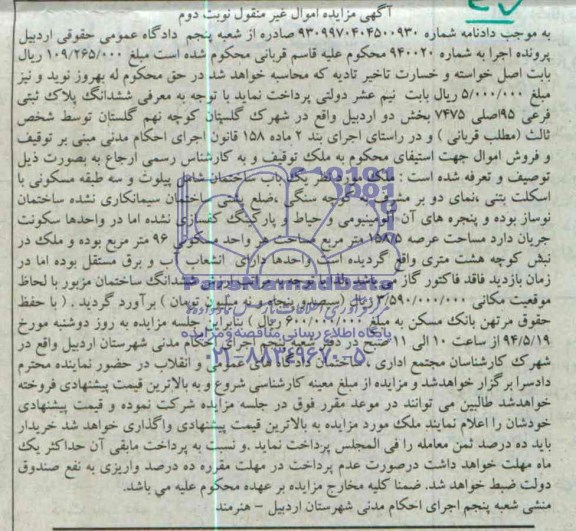 آگهی مزایده اموال غیر منقول نوبت دوم
به موجب دادنامه شماره ۹۳۰۹۹۷۰۴۰۴۵۰۰۹۳۰ صادره از شعبه پنجم دادگاه عمومی حقوقی اردبیل
پرونده اجرا به شماره ۹۴۰۰۲۰ محکوم علیه قاسم قربانی محکوم شده است مبلغ ۱۰۹/۲۶۵/۰۰۰ ریال
بابت اصل خواسته و خسارت تاخیر تادیه که محاسبه خواهد شد در حق محکوم له بهروز نوید و نیز
مبلغ ۵/۰۰۰/۰۰۰ ریال بابت نیم عشر دولتی پرداخت نماید با توجه به معرفی ششدانگ پلاک ثبتی
فرعی ۹۵اصلی ۷۴۷۵ بخش دو اردبیل واقع در شهرک گلستان کوچه نهم گلستان توسط شخص
ثالث (مطلب قربانی ) و در راستای اجرای بند ۲ ماده ۱۵۸ قانون اجرای احکام مدنی مبنی بر توقیف
و فروش اموال جهت استیفای محکوم به ملک توقیف و به کارشناس رسمی ارجاع به بصورت ذیل
توصیف و تعرفه شده است : ملک مورد نظر یک باب ساختمان شامل پیلوت و سه طبقه مسکونی با
اسکلت بتنی ،نمای دو بر مشرف به کوچه سنگی ،ضلع پشتی ساختمان سیمانکاری نشده ساختمان
نوساز بوده و پنجره های آن آلومینیومی و حیاط و پارکینگ کفسازی نشده اما در واحدها سکونت
جریان دارد مساحت عرصه ۱۵۸/۵ متر مربع مساحت هر واحد مسکونی ۹۶ متر مربع بوده و ملک در
نبش کوچه هشت متری واقع گردیده است واحدها دارای انشعاب آب و برق مستقل بوده اما در
زمان بازدید فاقد فاکتور گاز می باشد ششدانگ ساختمان مزبور با لحاظ
موقعیت مکانی ۳/۵۹۰/۰۰۰/۰۰۰ ریال (سیصد و پنجاه و نه میلیون تومان ) برآورد گردید . ( با حفظ
حقوق مرتهن بانک مسکن به مبلغ ۶۰۰/۰۰۰/۰۰۰ ریال ) بنابراین جلسه مزایده به روز دوشنبه مورخ
۹۴/۵/۱۹ از ساعت ۱۰ الی ۱۱ صبح در دفتر شعبه پنجم اجرای احکام مدنی شهرستان اردبیل واقع در
شهرک کارشناسان مجتمع اداری ،ساختمان دادگاه های عمومی و انقلاب در حضور نماینده محترم
دادسرا برگزار خواهدشد و مزایده از مبلغ معینه کارشناسی شروع و به بالاترین قیمت پیشنهادی فروخته
خواهدشد طالبین می توانند در موعد مقرر فوق در جلسه مزایده شرکت نموده و قیمت پیشنهادی
خودشان را اعلام نمایند ملک مورد مزایده به بالاترین قیمت پیشنهادی واگذاری خواهد شد خریدار
باید ده درصد ثمن معامله را فی المجلس پرداخت نماید .و نسبت به پرداخت مابقی آن حداکثر یک
ماه مهلت خواهد داشت درصورت عدم پرداخت در مهلت مقرره ده درصد واریزی به نفع صندوق
دولت ضبط خواهد شد. ضمنا کلیه مخارج مزایده بر عهده محکوم علیه می باشد.
منشی شعبه پنجم اجرای احکام مدنی شهرستان اردبیل – هنرمند
پایگاه اطلاع رسانی مناقصه و مزایده
۰۲۱-۸۸۳۴۹۶۷۰-۵